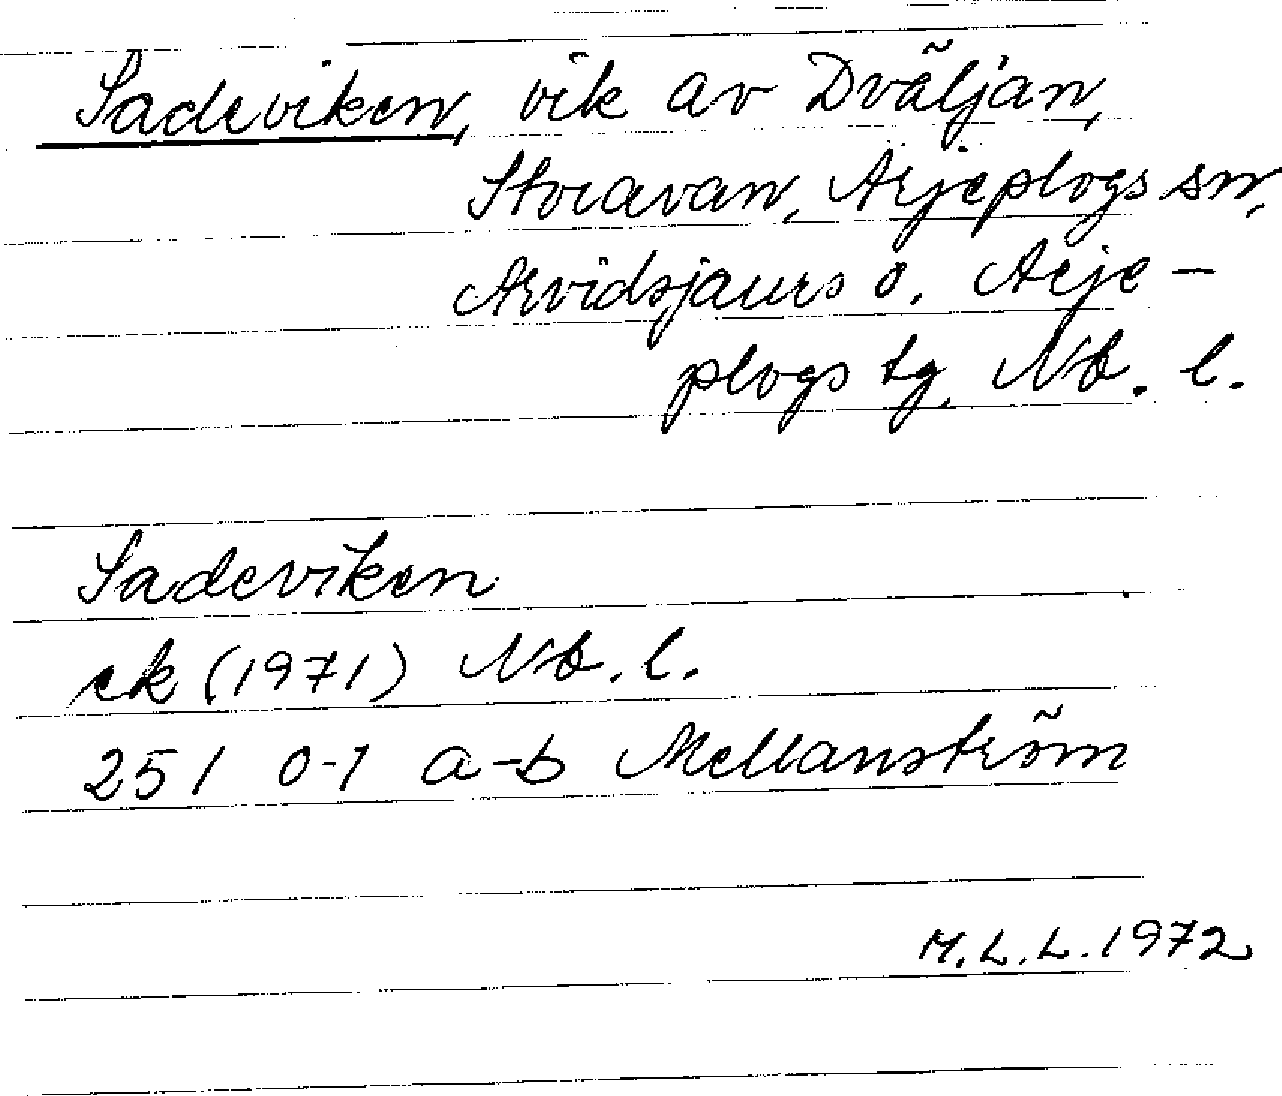 Sadeviken, vik av Dväljan,
Storavan, Arjeplogs sn,
Arvidsjaurs o. Arje-
plogs tg, Nb. l.
Sadeviken
ek (1971) Nb. l.
251 0-1 a-b Mellanström
M.L.L. 1972